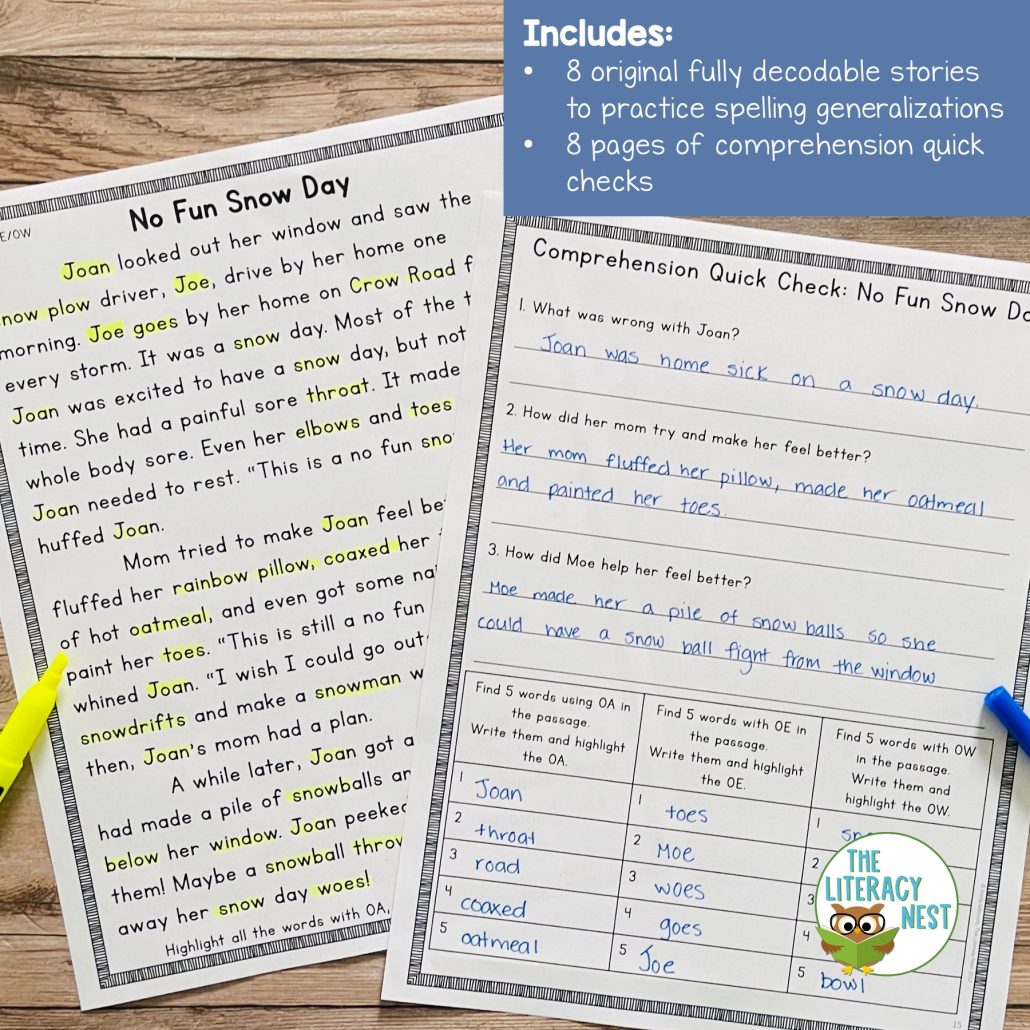 Includes:
• 8 original fully decodable stories
to practice spelling generalizations
• 8 pages of comprehension quick
checks
E/OW
No Fun Snow Day
Joan looked out her window and saw the
now plow driver, Joe, drive by her home one
morning. Joe goes by her home on Crow Road f
every storm. It was a snow day. Most of the t
Joan was excited to have a snow day, but not
time. She had a painful sore throat. It made
whole body sore. Even her elbows and toes
Joan needed to rest. "This is a no fun sno
huffed Joan.
Mom tried to make Joan feel be
fluffed her rainbow pillow, coaxed her
of hot oatmeal, and even got some na
paint her toes. "This is still a no fun
whined Joan. "I wish I could go out
snowdrifts and make a snowman w
then, Joan's mom had a plan.
A while later, Joan got a
had made a pile of snowballs an
below her window. Joan peeked
them! Maybe a snowball throw
away her snow day woes!
Highlight all the words with OA,
Comprehension Quick Check: No Fun Snow Da
1. What was wrong with Joan?
Joan was home sick on a snow day.
2. How did her mom try and make her feel better?
Her mom fluffed her pillow, made her oatmeal
and painted her toes
3. How did Moe help her feel better?
Moe made her a pile of snow balls so she
could have a snow ball fight from the window
Find 5 words using OA in
the passage.
Write them and highlight
the OA.
1 Joan
2 throat
3 road
4 coaxed
5 oatmeal
Find 5 words with OE in
the passage.
Write them and highlight
the OE.
1 toes
2 Moe
3 woes
4 goes
5 Joe
Find 5 words with OW
in the passage.
Write them and
highlight the OW.
1 sno
2
3
4
5 bowl
THE
LITERACY
NEST
15